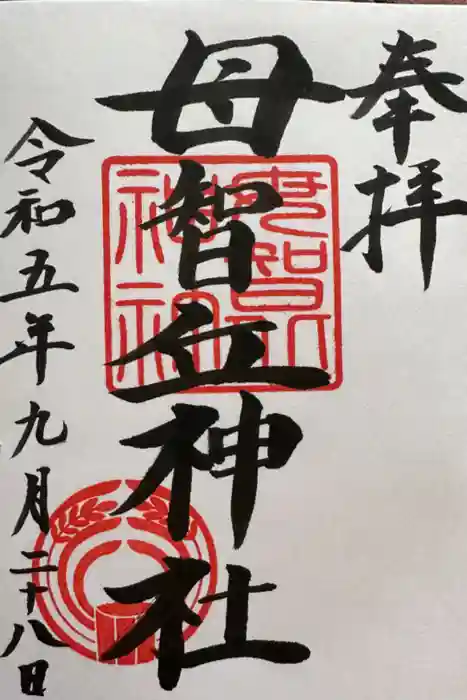 奉拝
母智丘神社
令和五年九月二十八日